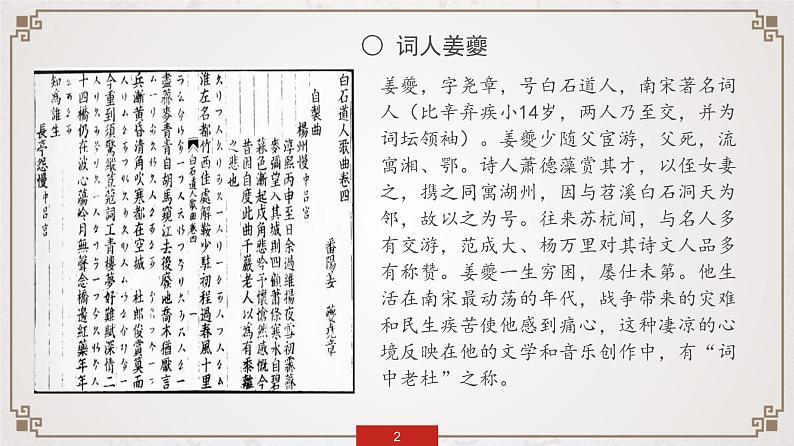 词人姜夔
姜夔，字尧章，号白石道人，南宋著名词
人（比辛弃疾小14岁，两人乃至交，并为
词坛领袖）。姜夔少随父宦游，父死，流
寓湘、鄂。诗人萧德藻赏其才，以侄女妻
之，携之同寓湖州，因与苕溪白石洞天为
邻，故以之为号。往来苏杭间，与名人多
有交游，范成大、杨万里对其诗文人品多
有称赞。姜夔一生穷困，屡仕未第。他生
活在南宋最动荡的年代，战争带来的灾难
和民生疾苦使他感到痛心，这种凄凉的心
境反映在他的文学和音乐创作中，有“词
中老杜”之称。
白石道人歌曲卷四
番陽姜 夔堯章
自製曲
揚州慢 中呂宮
淳熙丙申至日余過維揚夜雪初霽薺
麥彌望入其城則四顧蕭條寒水自碧
暮色漸起戍角悲吟予懷愴然感慨今
昔因自度此曲千巖老人以為有黍離
之悲也
淮左名都竹西佳處解鞍少駐初程過春風十里
白石道人歌曲卷四
盡薺麥青青自胡馬窺江去後廢池喬木猶厭言
兵漸黃昏清角吹寒都在空城 杜郎俊賞算而
今重到須驚縱荳蔻詞工青樓夢好難賦深情二
十四橋仍在波心蕩冷月無聲念橋邊紅藥年年
知為誰生
長亭怨慢 中呂宮
2